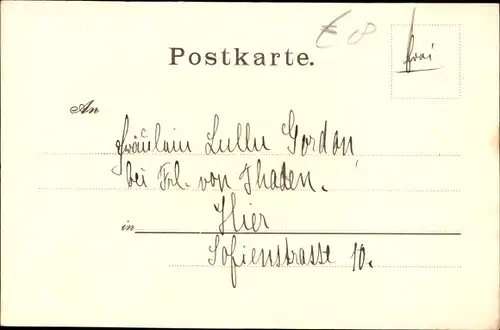 € 8
frei
Postkarte.
An
Fräulein Lullu Gordon,
bei Frl. von Thaden.
in Hier
Sofienstrasse 10.